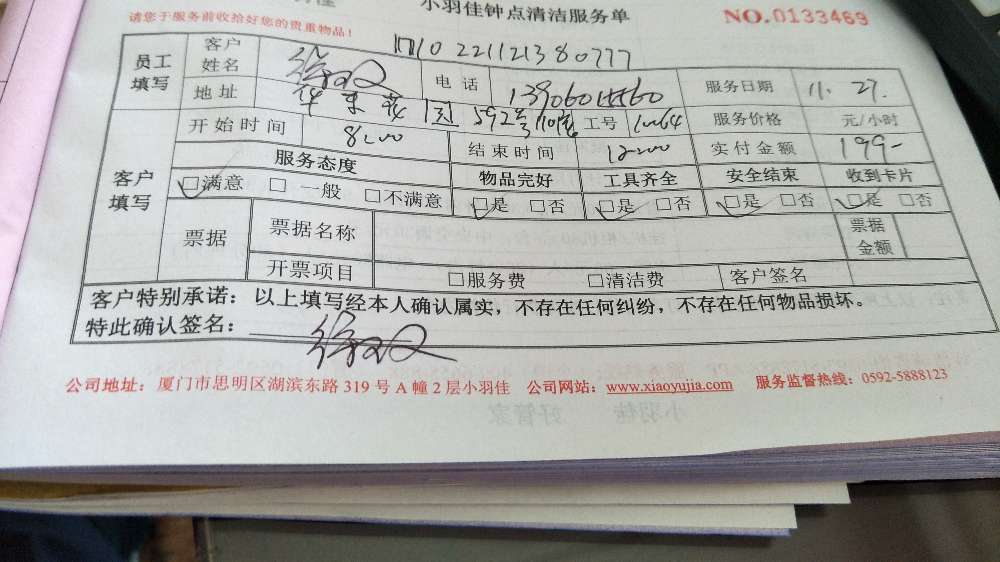 小羽佳钟点清洁服务单 NO.0133469
请您于服务前收拾好您的贵重物品！
员工填写 客户姓名 电话 服务日期 11.27.
地址 592号 工号 服务价格 元/小时
开始时间 8:00 结束时间 12:00 实付金额 199-
客户填写 服务态度 物品完好 工具齐全 安全结束 收到卡片
□满意 □一般 □不满意 □是 □否 □是 □否 □是 □否 □是 □否
票据 票据名称 票据金额
开票项目 □服务费 □清洁费 客户签名
客户特别承诺：以上填写经本人确认属实，不存在任何纠纷，不存在任何物品损坏。
特此确认签名：
公司地址：厦门市思明区湖滨东路319号A幢2层小羽佳 公司网站：www.xiaoyujia.com 服务监督热线：0592-5888123